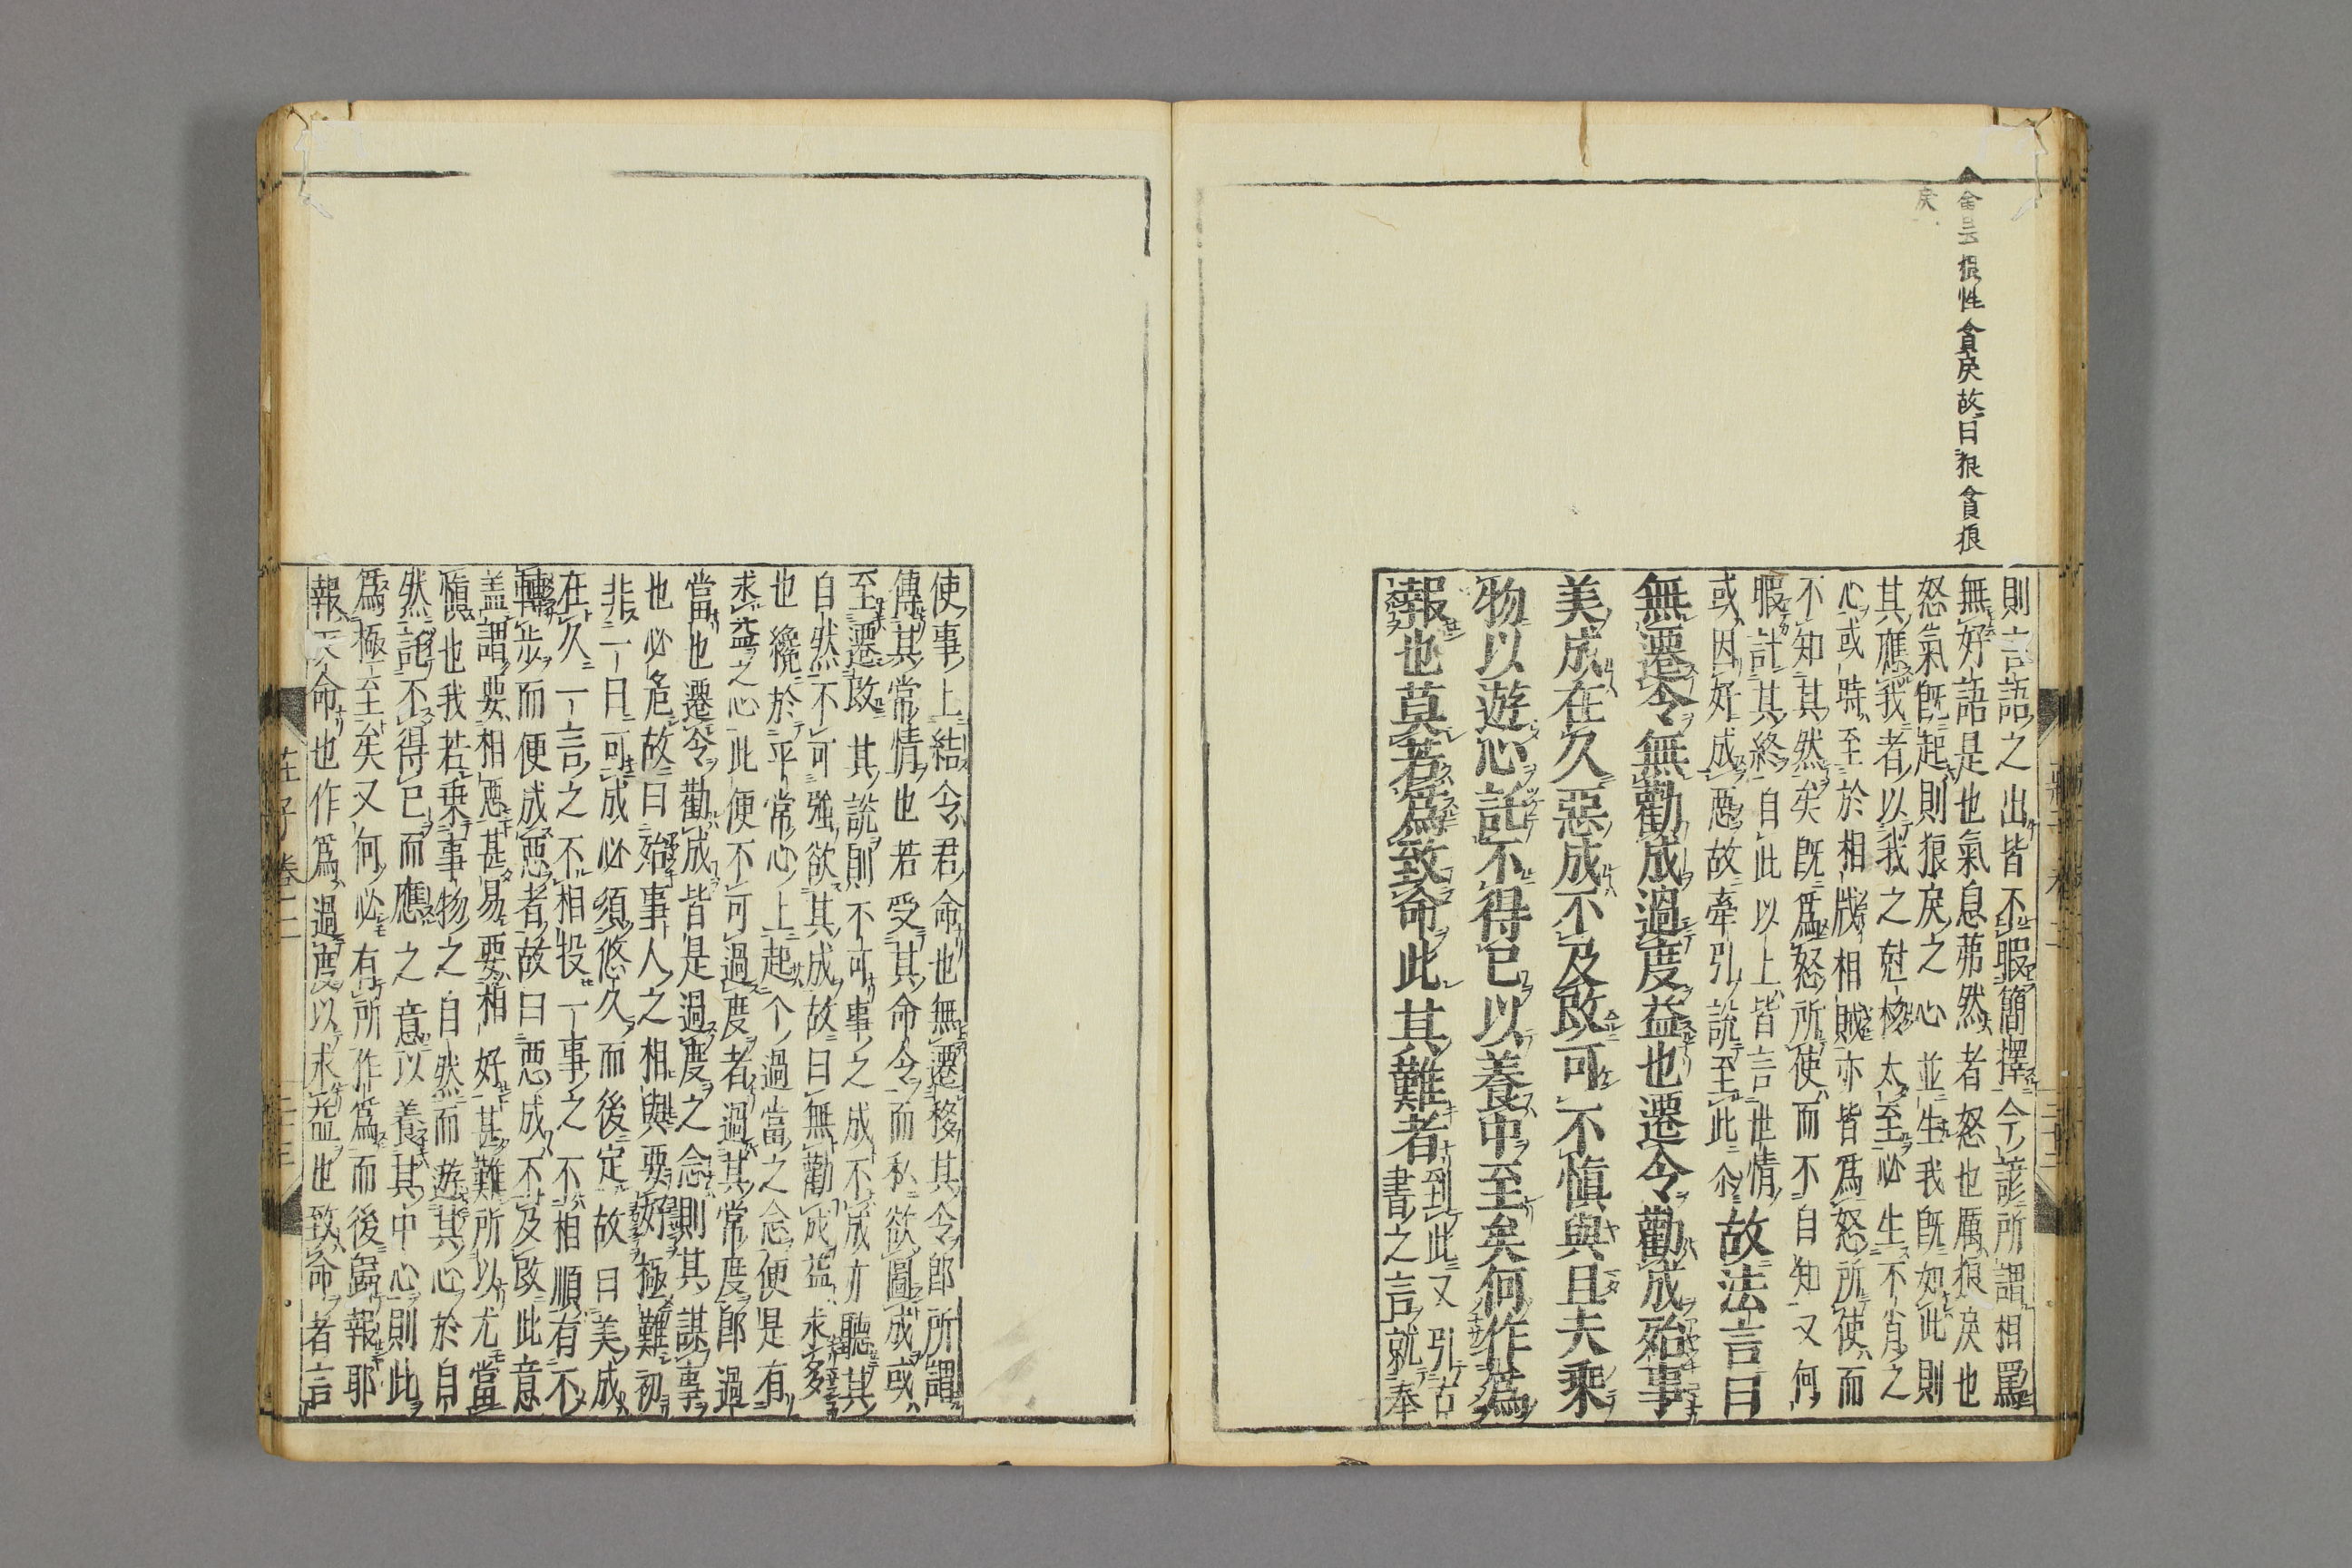 狠性貪戾故曰狠貪狼
戾
則言語之出皆不暇簡擇今諺所謂相罵
無好語是也氣息茀然者怒也厲狼戾也
怒氣旣起則狼戾之心並生我旣如此則
其應我者以我之尅核太至必生不肖之
心或時至於相戕相賊亦皆爲怒所使而
不知其然矣旣爲怒所使而不自知又何
暇計其終自此以上皆言世情
或因好成惡故牽引說至此 故法言曰
無遷令無勸成過度益也遷令勸成殆事
美成在久惡成不及改可不愼與且夫乘
物以遊心託不得已以養中至矣何作爲
報也莫若爲致命此其難者 到此又引古
書之言就奉
使事上結令君命也無遷移其令卽所謂
傳其常情也若受其命令而私欲圖成或
至遷改其說則不可事之成不成亦聽其
自然不可強欲其成故曰無勸成益求多
也纔於平常心上起个過當之念便是有
求益之心此便不可過度者過其常度卽過
當也遷令勸成皆是過度之念則其謀事
也必危故曰殆事人之相與要好極難初
非一日可成必須悠久而後定故曰美成
在久一言之不相投一事之不相順有不
轉步而便成惡者故曰惡成不及改此意
盖謂要相惡甚易要相好甚難所以尤當
愼也我若乗事物之自然而遊其心於自
然託不得已而應之意以養其中心則此
爲極至矣又何必有所作爲而後爲報耶
報命也作爲過度以求益也致命者言
莊子卷二